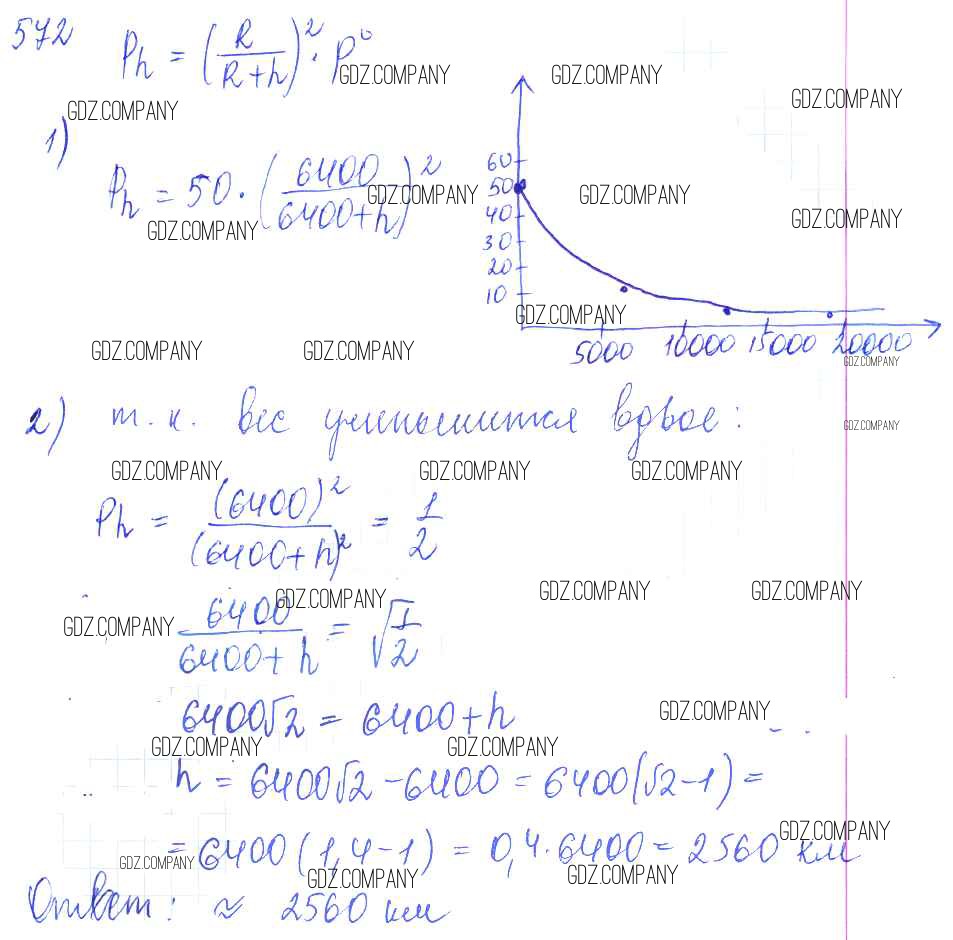 572 Pₕ = (R/(R+h))² · P⁰
GDZ.COMPANY GDZ.COMPANY
GDZ.COMPANY GDZ.COMPANY
1)
Pₕ = 50 · (6400/(6400+h))²
GDZ.COMPANY GDZ.COMPANY
GDZ.COMPANY GDZ.COMPANY
60
50
40
30
20
10
GDZ.COMPANY
5000 10000 15000 20000
GDZ.COMPANY GDZ.COMPANY GDZ.COMPANY
2) т.к. вес уменьшится вдвое:
GDZ.COMPANY
GDZ.COMPANY GDZ.COMPANY GDZ.COMPANY
Pₕ = (6400)²/(6400+h)² = 1/2
GDZ.COMPANY GDZ.COMPANY GDZ.COMPANY
GDZ.COMPANY
6400/(6400+h) = √(1/2)
6400√2 = 6400+h
GDZ.COMPANY
GDZ.COMPANY GDZ.COMPANY
h = 6400√2 - 6400 = 6400(√2-1) =
GDZ.COMPANY
= 6400(1,4-1) = 0,4·6400 = 2560 км
GDZ.COMPANY GDZ.COMPANY GDZ.COMPANY
Ответ: ≈ 2560 км